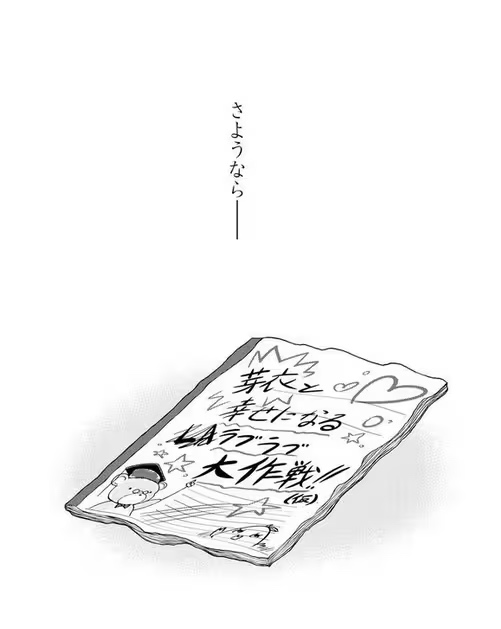 さようなら――
芽衣と
幸せになる
LAラブラブ
大作戦!!
(仮)